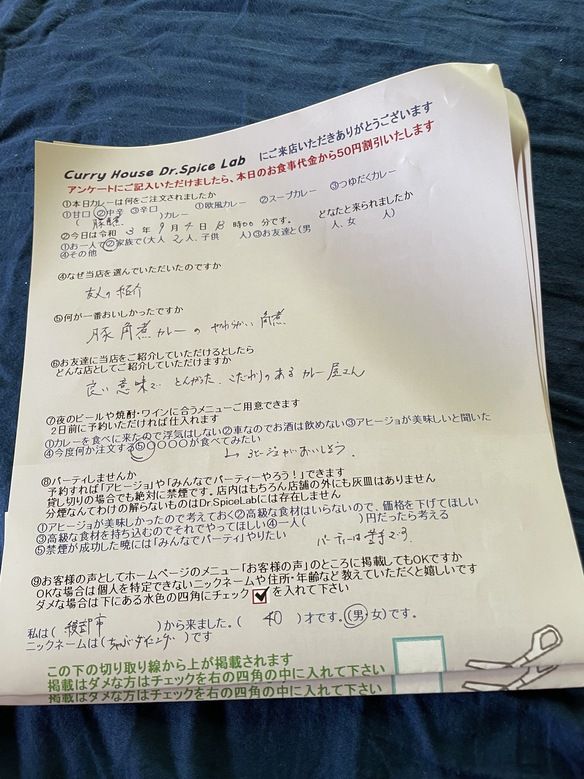 Curry House Dr.Spice Lab にご来店いただきありがとうございます
アンケートにご記入いただけましたら、本日のお食事代金から50円割引いたします
①本日カレーは何をご注文されましたか
①甘口 ②中辛 ③辛口 ①欧風カレー ②スープカレー ③つゆだくカレー
( 豚角煮 )カレー
②今日は令和 3 年 9 月 4 日 13 時00分です。 どなたと来られましたか
①お一人で②家族で(大人 2人、子供 人)③お友達と(男 人、女 人)
④その他
④なぜ当店を選んでいただいたのですか
友人の紹介
⑤何が一番おいしかったですか
豚角煮カレーの やわらかい 角煮
⑥お友達に当店をご紹介していただけるとしたら
どんな店としてご紹介していただけますか
良い意味で とんがった、こだわりのある カレー屋さん
⑦夜のビールや焼酎・ワインに合うメニューご用意できます
2日前に予約いただければ仕入れます
①カレーを食べに来たので浮気はしない②車なのでお酒は飲めない③アヒージョが美味しいと聞いた
④今度何か注文する⑤〇〇〇〇が食べてみたい
↳ アヒージョがおいしそう.
⑧パーティしませんか
予約すれば「アヒージョ」や「みんなでパーティーやろう!」できます
貸し切りの場合でも絶対に禁煙です。店内はもちろん店舗の外にも灰皿はありません
分煙なんてわけの解らないものはDr.SpiceLabには存在しません
①アヒージョが美味しかったので考えておく②高級な食材はいらないので、価格を下げてほしい
③高級な食材を持ち込むのでそれでやってほしい④一人( )円だったら考える
⑤禁煙が成功した暁には「みんなでパーティ」やりたい パーティーは苦手です
⑨お客様の声としてホームページのメニュー「お客様の声」のところに掲載してもOKですか
OKな場合は個人を特定できないニックネームや住所・年齢など教えていただくと嬉しいです
ダメな場合は下にある水色の四角にチェック を入れて下さい
私は( 綾部市 )から来ました。( 40 )才です。(男)女)です。
ニックネームは( )です
この下の切り取り線から上が掲載されます
掲載はダメな方はチェックを右の四角の中に入れて下さい
掲載はダメな方はチェックを右の四角の中に入れて下さい